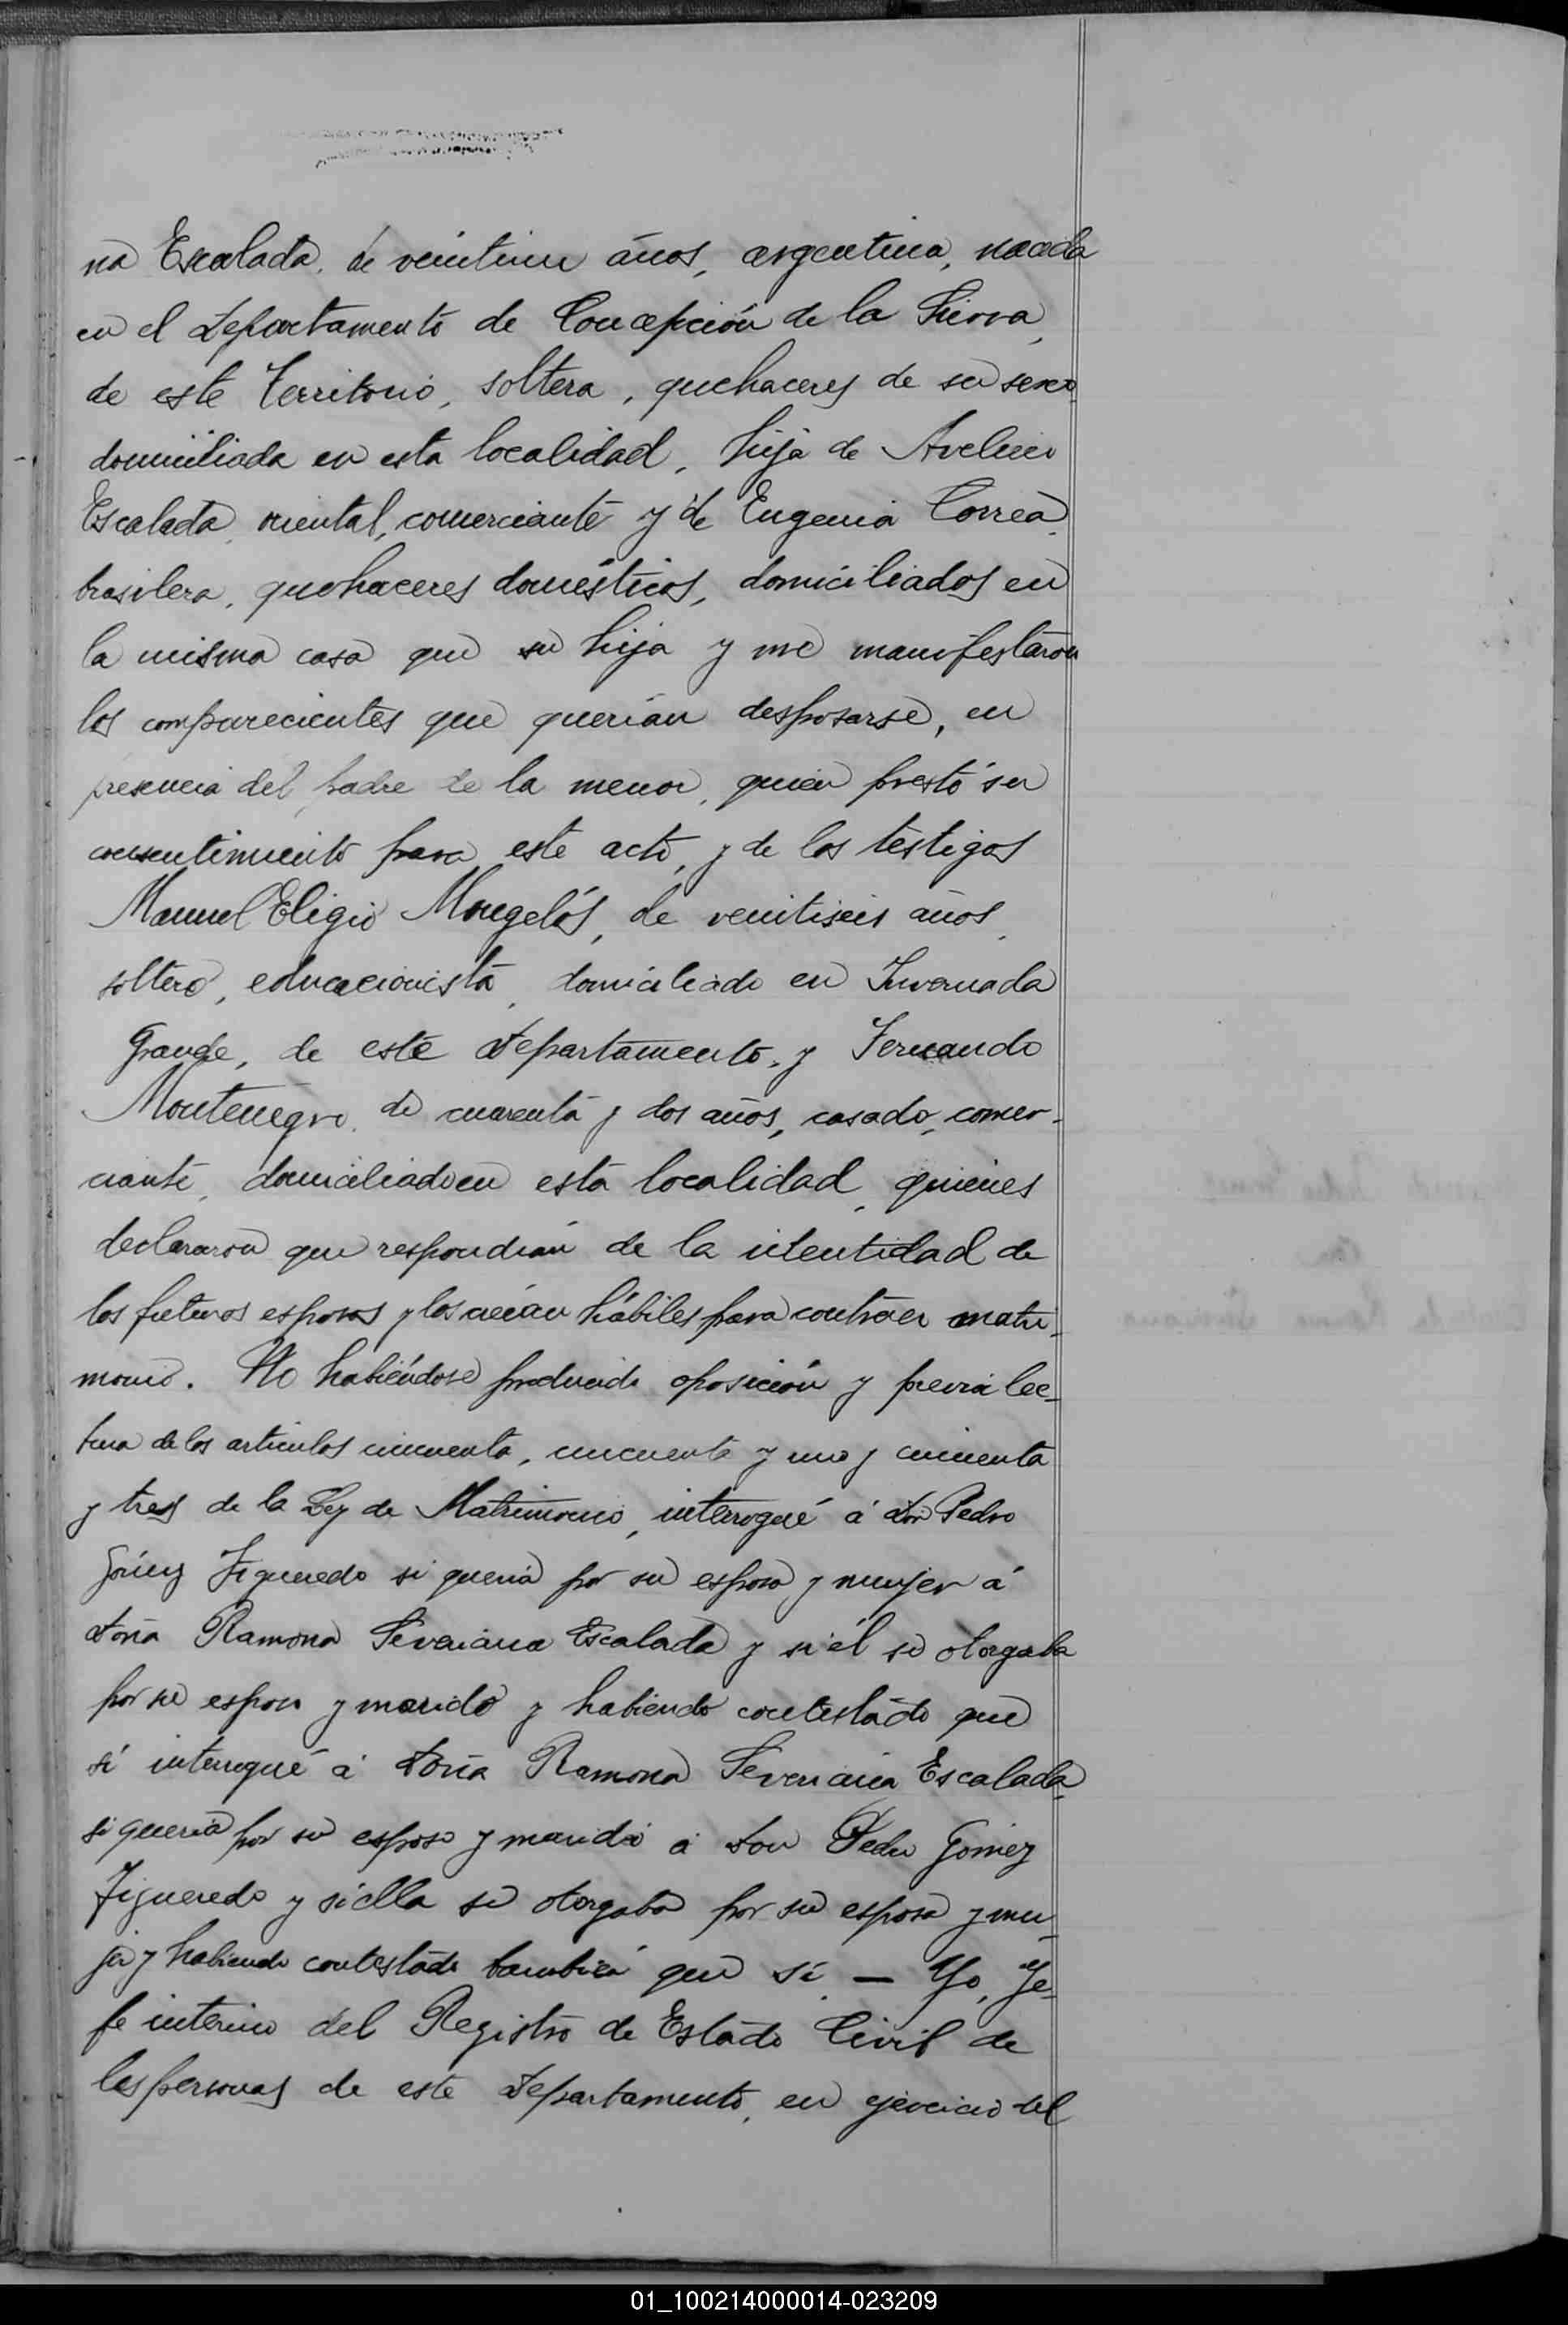 na Escalada, de veintiun años, argentina, nacida
en el Departamento de Concepción de la Sierra,
de este Territorio, soltera, quehaceres de su sexo,
domiciliada en esta localidad, hija de Avelino
Escalada, oriental, comerciante y de Eugenia Correa,
brasilera, quehaceres domésticos, domiciliados en
la misma casa que su hija y me manifestaron
los comparecientes que querían desposarse, en
presencia del padre de la menor, quien prestó su
consentimiento para este acto, y de los testigos
Manuel Eligio Mongelós, de veintiseis años,
soltero, educacionista, domiciliado en Invernada
Grande, de este Departamento, y Fernando
Montenegro, de cuarenta y dos años, casado, comer-
ciante, domiciliado en esta localidad, quienes
declararon que respondian de la identidad de
los futuros esposos y los creían hábiles para contraer matri-
monio. No habiéndose producido oposición y previa lec-
tura de los artículos cincuenta, cincuenta y uno y cincuenta
y tres de la Ley de Matrimonio, interrogué á don Pedro
Gómez Figueredo si quería por su esposa y mujer á
doña Ramona Severiana Escalada y si él se otorgaba
por su esposo y marido y habiendo contestado que
sí interrogué á doña Ramona Severiana Escalada,
si quería por su esposo y marido á don Pedro Gómez
Figueredo y si ella se otorgaba por su esposa y mu-
jer y habiendo contestado también que sí. — Yo, Je-
fe interino del Registro de Estado Civil de
las personas de este Departamento, en ejercicio del
01_100214000014-023209